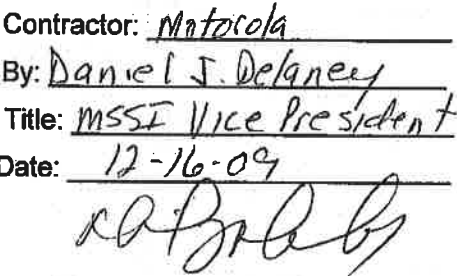 Contractor: Motorola
By: Daniel J. Delaney
Title: MSSI Vice President
Date: 12-16-09